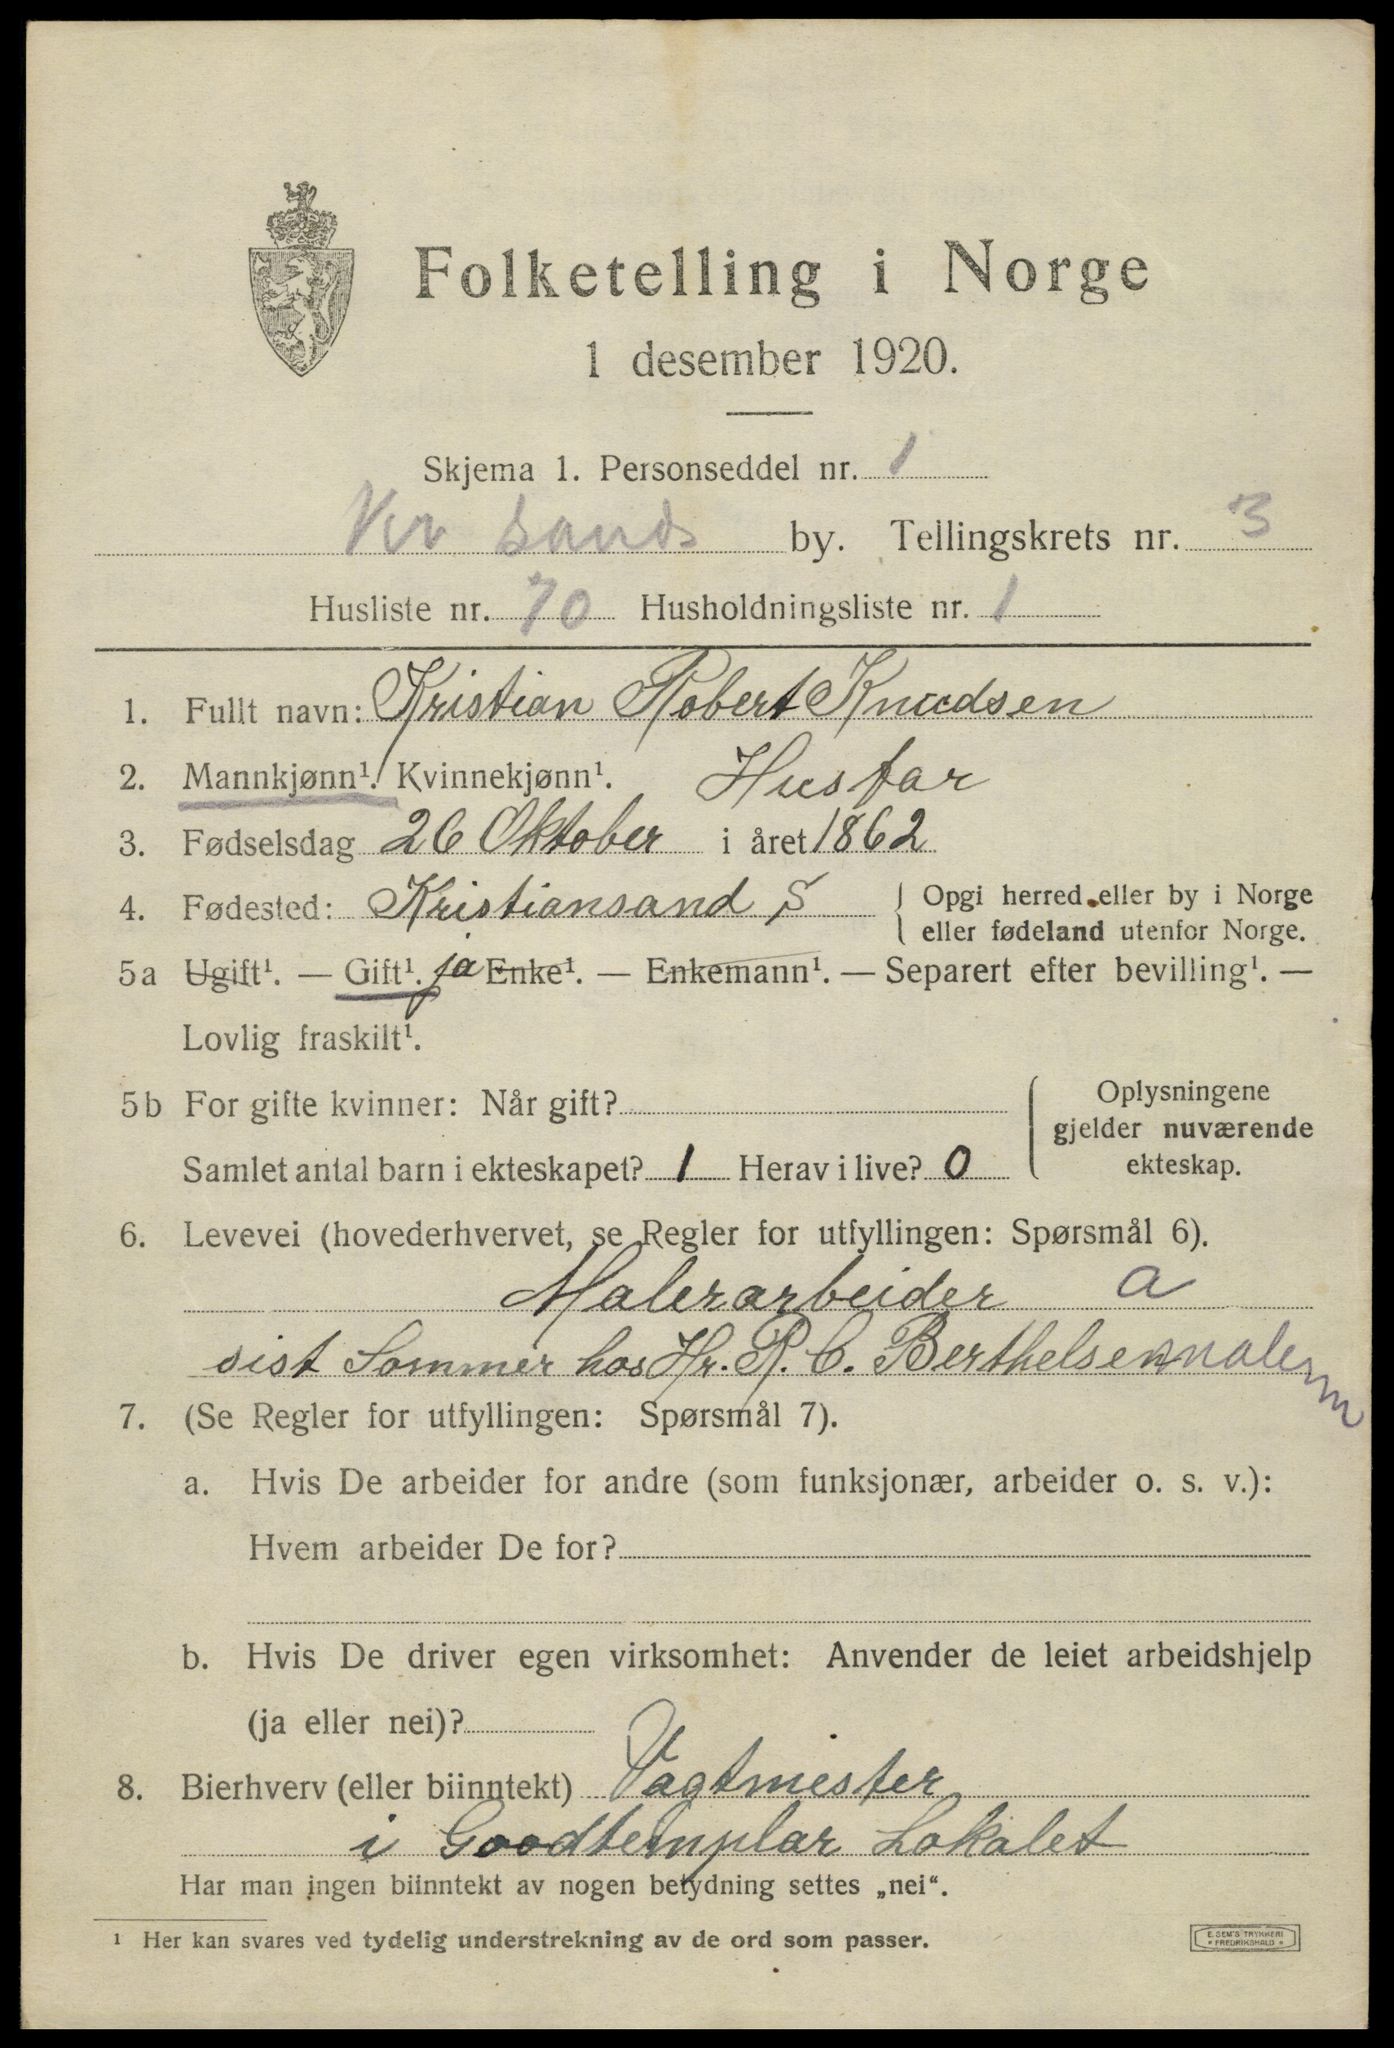 Folketelling i Norge
1 desember 1920.
Skjema 1. Personseddel nr. 1
Kr sands by. Tellingskrets nr. 3
Husliste nr. 70 Husholdningsliste nr. 1
1. Fullt navn: Kristian Robert Knudsen
2. Mannkjønn¹. Kvinnekjønn¹. Husfar
3. Fødselsdag 26 Oktober i året 1862
4. Fødested: Kristiansand S { Opgi herred eller by i Norge
eller fødeland utenfor Norge.
5a Ugift¹. — Gift¹. ja Enke¹. — Enkemann¹. — Separert efter bevilling¹. —
Lovlig fraskilt¹.
5b For gifte kvinner: Når gift?
Samlet antal barn i ekteskapet? 1 Herav i live? 0
Oplysningene
gjelder nuværende
ekteskap.
6. Levevei (hovederhvervet, se Regler for utfyllingen: Spørsmål 6).
Malerarbeider a
sist Sommer hos Hr. R. C. Berthelsen malerm
7. (Se Regler for utfyllingen: Spørsmål 7).
a. Hvis De arbeider for andre (som funksjonær, arbeider o. s. v.):
Hvem arbeider De for?
b. Hvis De driver egen virksomhet: Anvender de leiet arbeidshjelp
(ja eller nei)?
8. Bierhverv (eller biinntekt) Vagtmester
i Goodtemplar Lokalet
Har man ingen biinntekt av nogen betydning settes „nei“.
¹ Her kan svares ved tydelig understrekning av de ord som passer.
E. SEM'S TRYKKERI
FREDRIKSHALD